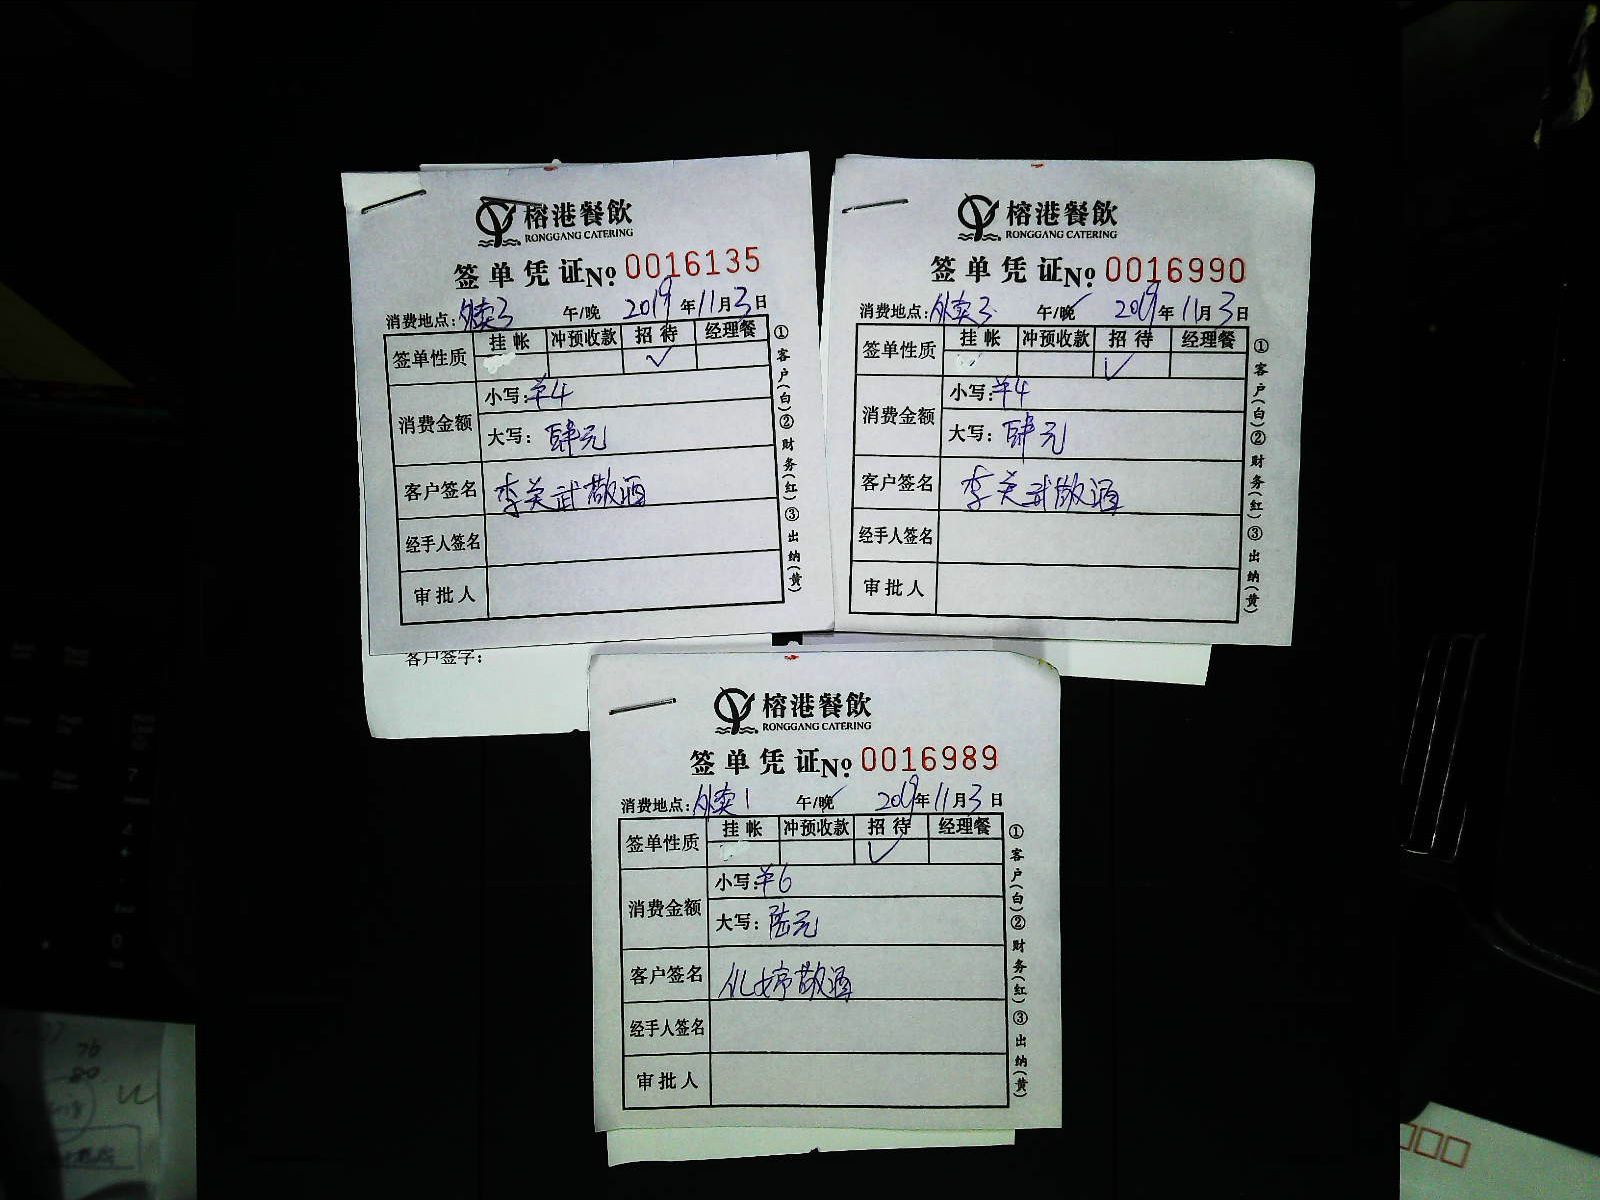 榕港餐飲
RONGGANG CATERING
签单凭证 No. 0016135
消费地点：外卖3 午/晚 2019年11月3日
签单性质 挂帐 冲预收款 招待 经理餐
✓
消费金额 小写：羊4
大写：肆元
客户签名 李英武敬酒
经手人签名
审批人
①客户(白)②财务(红)③出纳(黄)
客户签字：
榕港餐飲
RONGGANG CATERING
签单凭证 No. 0016990
消费地点：外卖3 午/晚 2019年11月3日
签单性质 挂帐 冲预收款 招待 经理餐
✓
消费金额 小写：羊4
大写：肆元
客户签名 李英武敬酒
经手人签名
审批人
①客户(白)②财务(红)③出纳(黄)
榕港餐飲
RONGGANG CATERING
签单凭证 No. 0016989
消费地点：外卖1 午/晚 2019年11月3日
签单性质 挂帐 冲预收款 招待 经理餐
✓
消费金额 小写：羊6
大写：陆元
客户签名 婷敬酒
经手人签名
审批人
①客户(白)②财务(红)③出纳(黄)
76
80